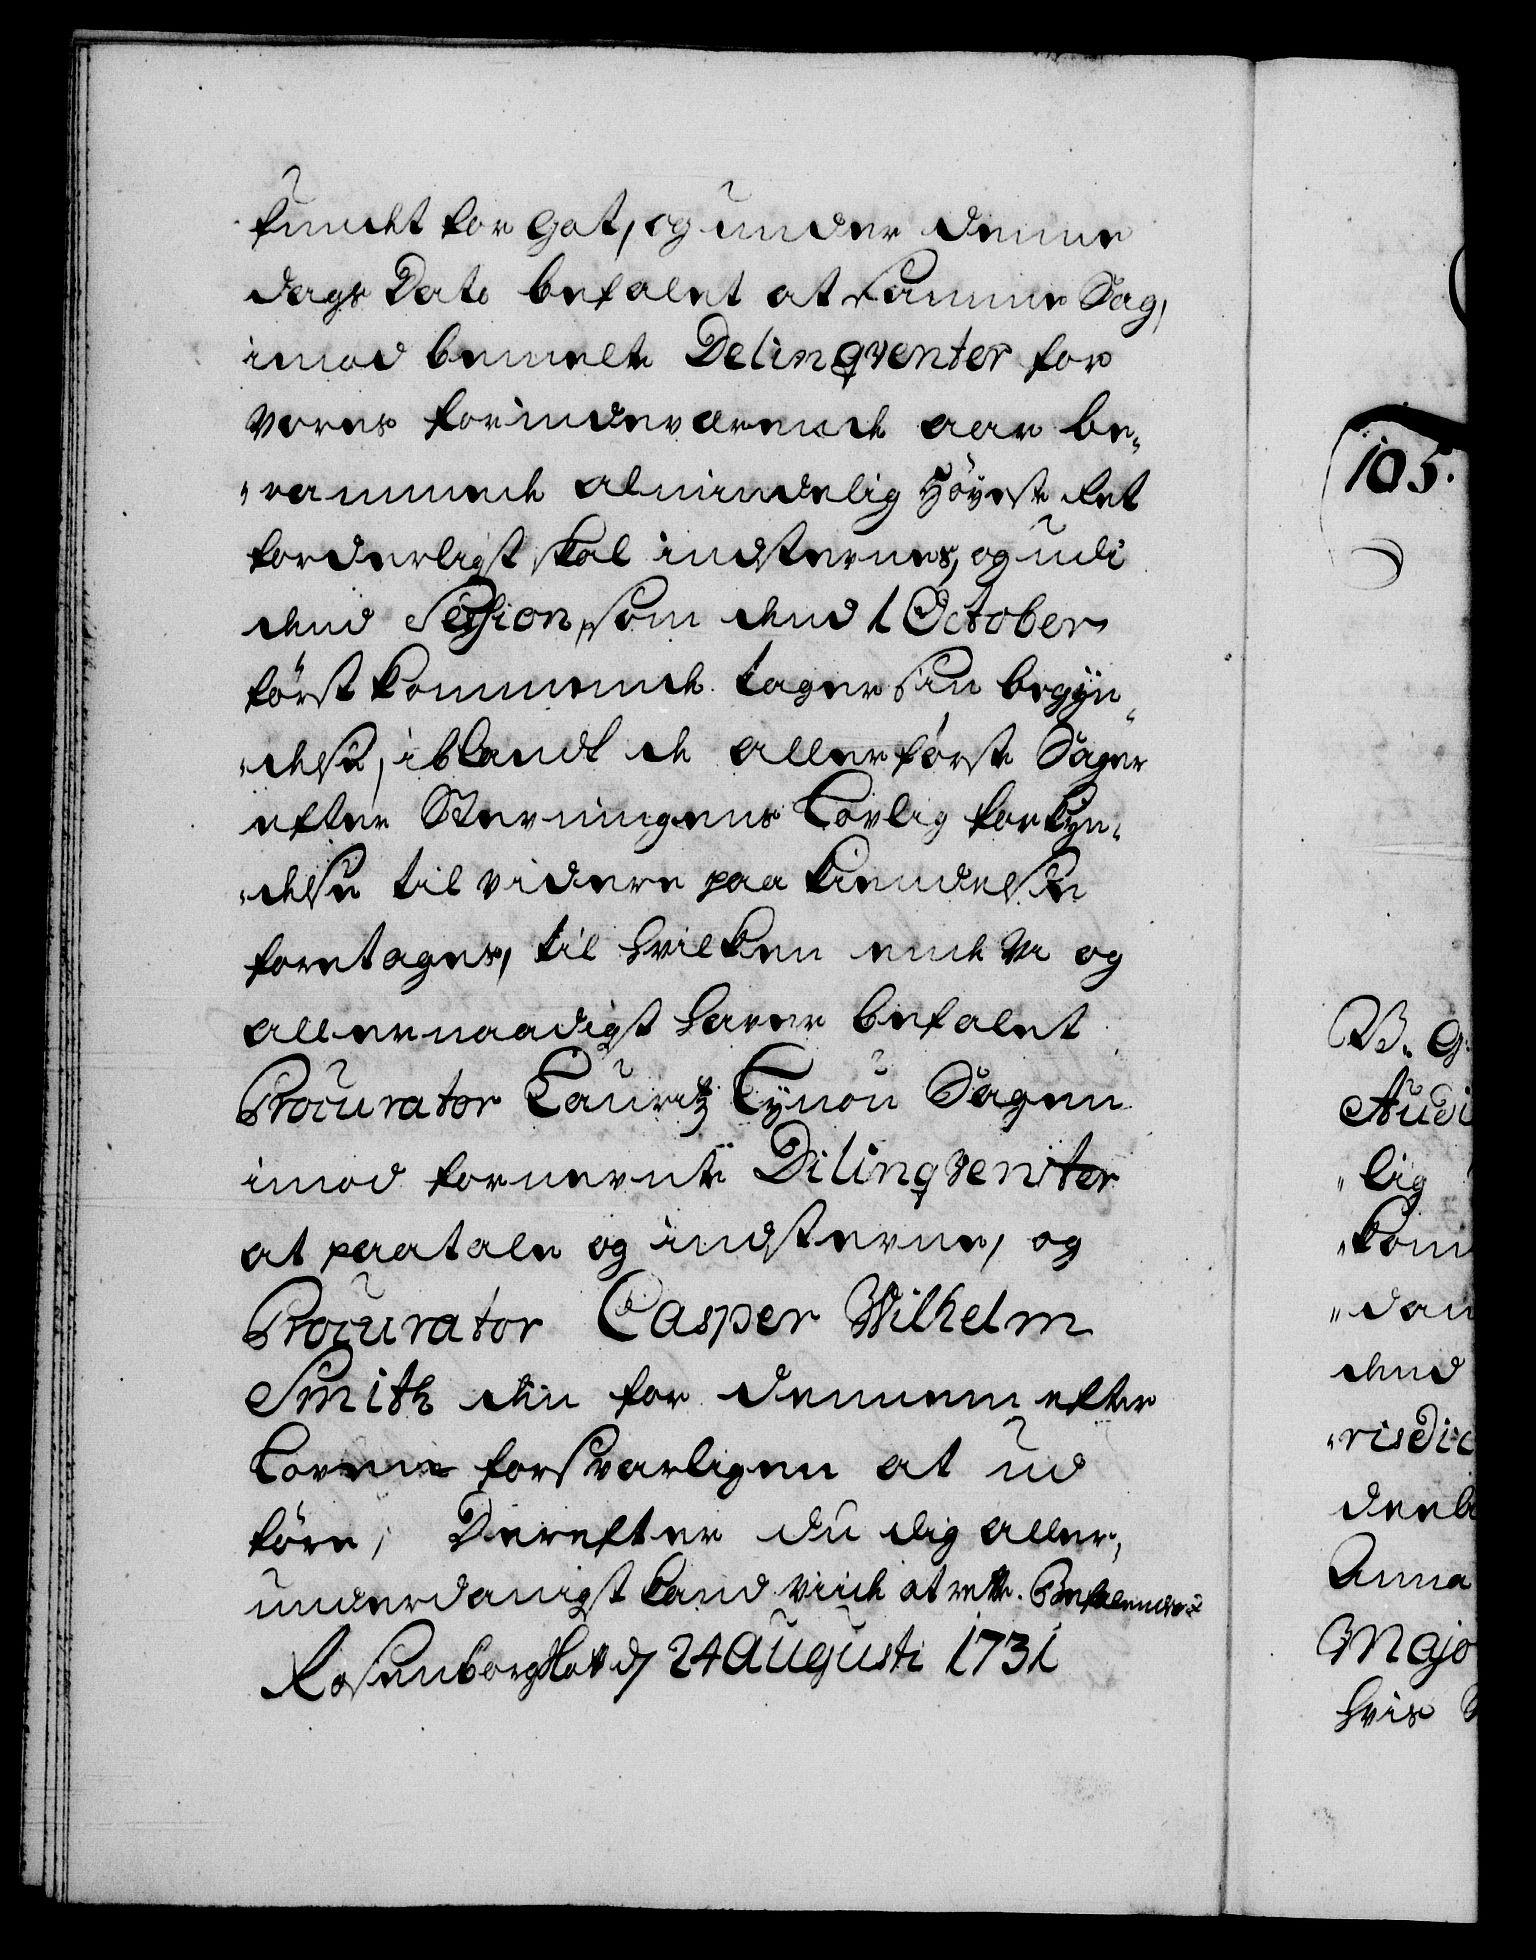 fundet for got, og under denne
dags Dato befalet at samme Sag,
imod bemelte Delinqventer for
Vores for indeværende aar be„
„rammede almindelig Höyeste Ret
forderligst skal indstevnes, og udi
dend Session, som dend 1 October
först kommende tager sin begyn„
„delse, iblandt de allerförste Sager
efter Stevningens Lovlig forkyn„
„delse til videre paa kiendelse
foretages, til hvilken ende Vi og
allernaadigst haver befalet
Procurator Lauritz Lynou Sagen
imod fornevnte Dilinqventer
at paatale og indstevne, og
Procurator Casper Wilhelm
Smith den for dennem efter
Loven forsvarligen at ud
före; Derefter du dig aller„
underdanigst kand viide at rette. Befalendes
Rosenborg Slott dy 24 Augusti 1731
105.
V. G.
Audi
„lig
„kom
„dan
dend
„risdic
deels
Anna
Majo
hvis